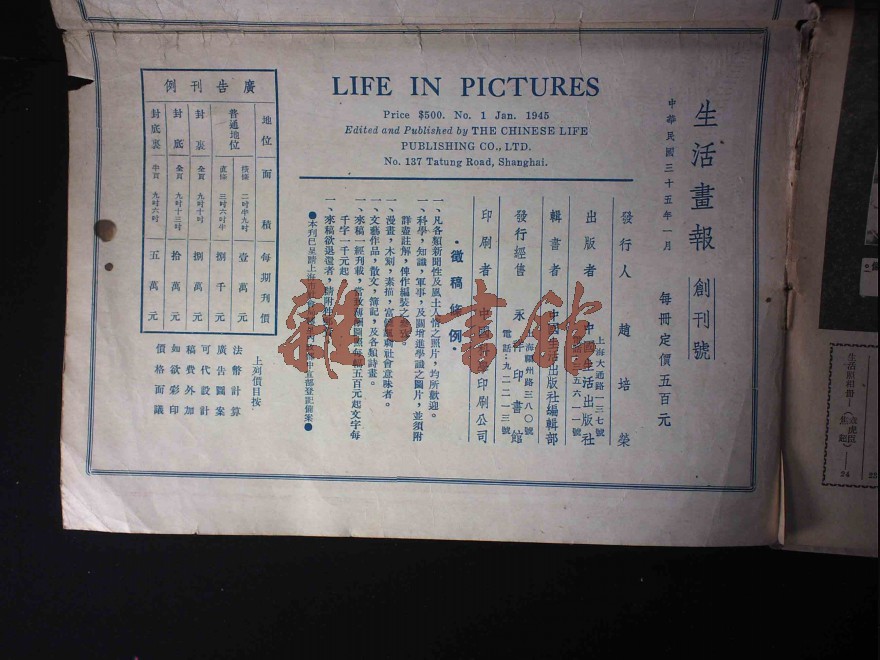 生活畫報 創刊號
中華民國三十五年一月 每冊定價五百元
發行人 趙培榮
出版者 中國生活出版社
上海大通路一三七號
輯書者 中國生活出版社編輯部
發行經售 永祥印書館
電話:九二二一三號
印刷者 中國科學印刷公司
LIFE IN PICTURES
Price $500. No. 1 Jan. 1945
Edited and Published by THE CHINESE LIFE
PUBLISHING CO., LTD.
No. 137 Tatung Road, Shanghai.
·徵稿條例·
一、凡各類新聞性及風土人情之照片,均所歡迎。
一、科學,知識,軍事,及關增進學識之圖片,並須附
詳盡註解,俾作編裝之
一、漫畫,木刻,素描,富 社會意味者。
一、文藝作品,散文,簡記,及各類詩畫。
一、來稿一經刊載, 每幅五百元起文字每
千字一千元起
一、來稿欲退還者,請附
●本刊已呈請上海市社會局 中宣部登記備案●
廣告刊例
地位 面積 每期刊價
普通地位 橫條 二吋半九吋 壹萬元
直條 三吋六吋半 捌千元
封裏 全頁 九吋十吋 捌萬元
封底 全頁 九吋十三吋 拾萬元
封底裏 半頁 九吋六吋 五萬元
上列價目按
法幣計算
廣告圖案
可代設計
稿費外加
如欲彩印
價格面議
雜·書館
生活照相冊
24
22